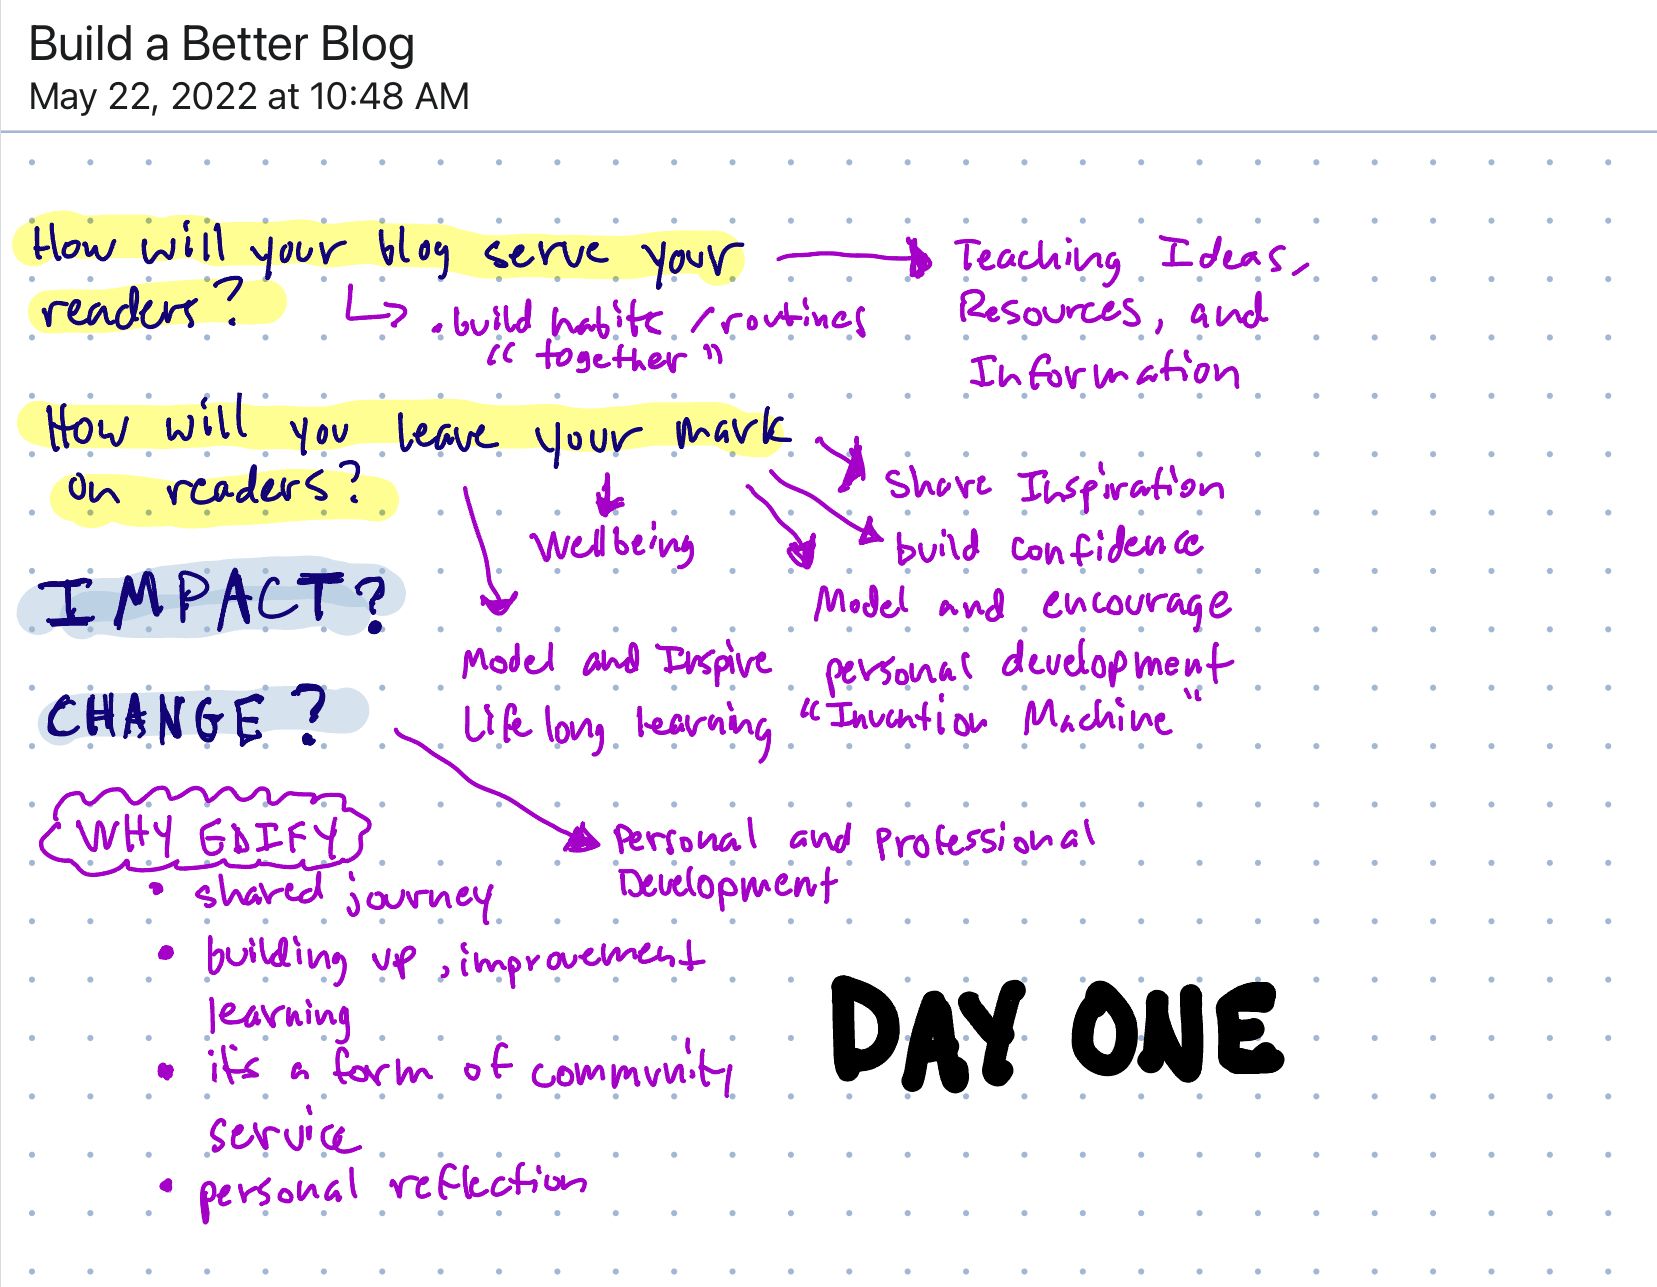 Build a Better Blog
May 22, 2022 at 10:48 AM
How will your blog serve your
readers?
Teaching Ideas,
Resources, and
Information
. build habits / routines
"together"
How will you leave your mark
on readers?
Share Inspiration
build confidence
Wellbeing
Model and encourage
personal development
"Invention Machine"
Model and Inspire
Life long learning
IMPACT?
CHANGE?
Personal and Professional
Development
WHY EDIFY
• shared journey
• building up, improvement
learning
• it's a form of community
service
• personal reflection
DAY ONE